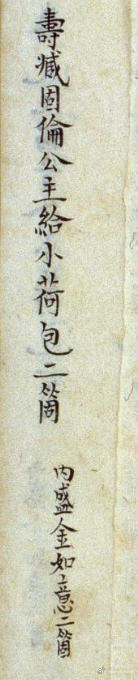 壽臧固倫公主給小荷包二箇
內盛金如意二箇